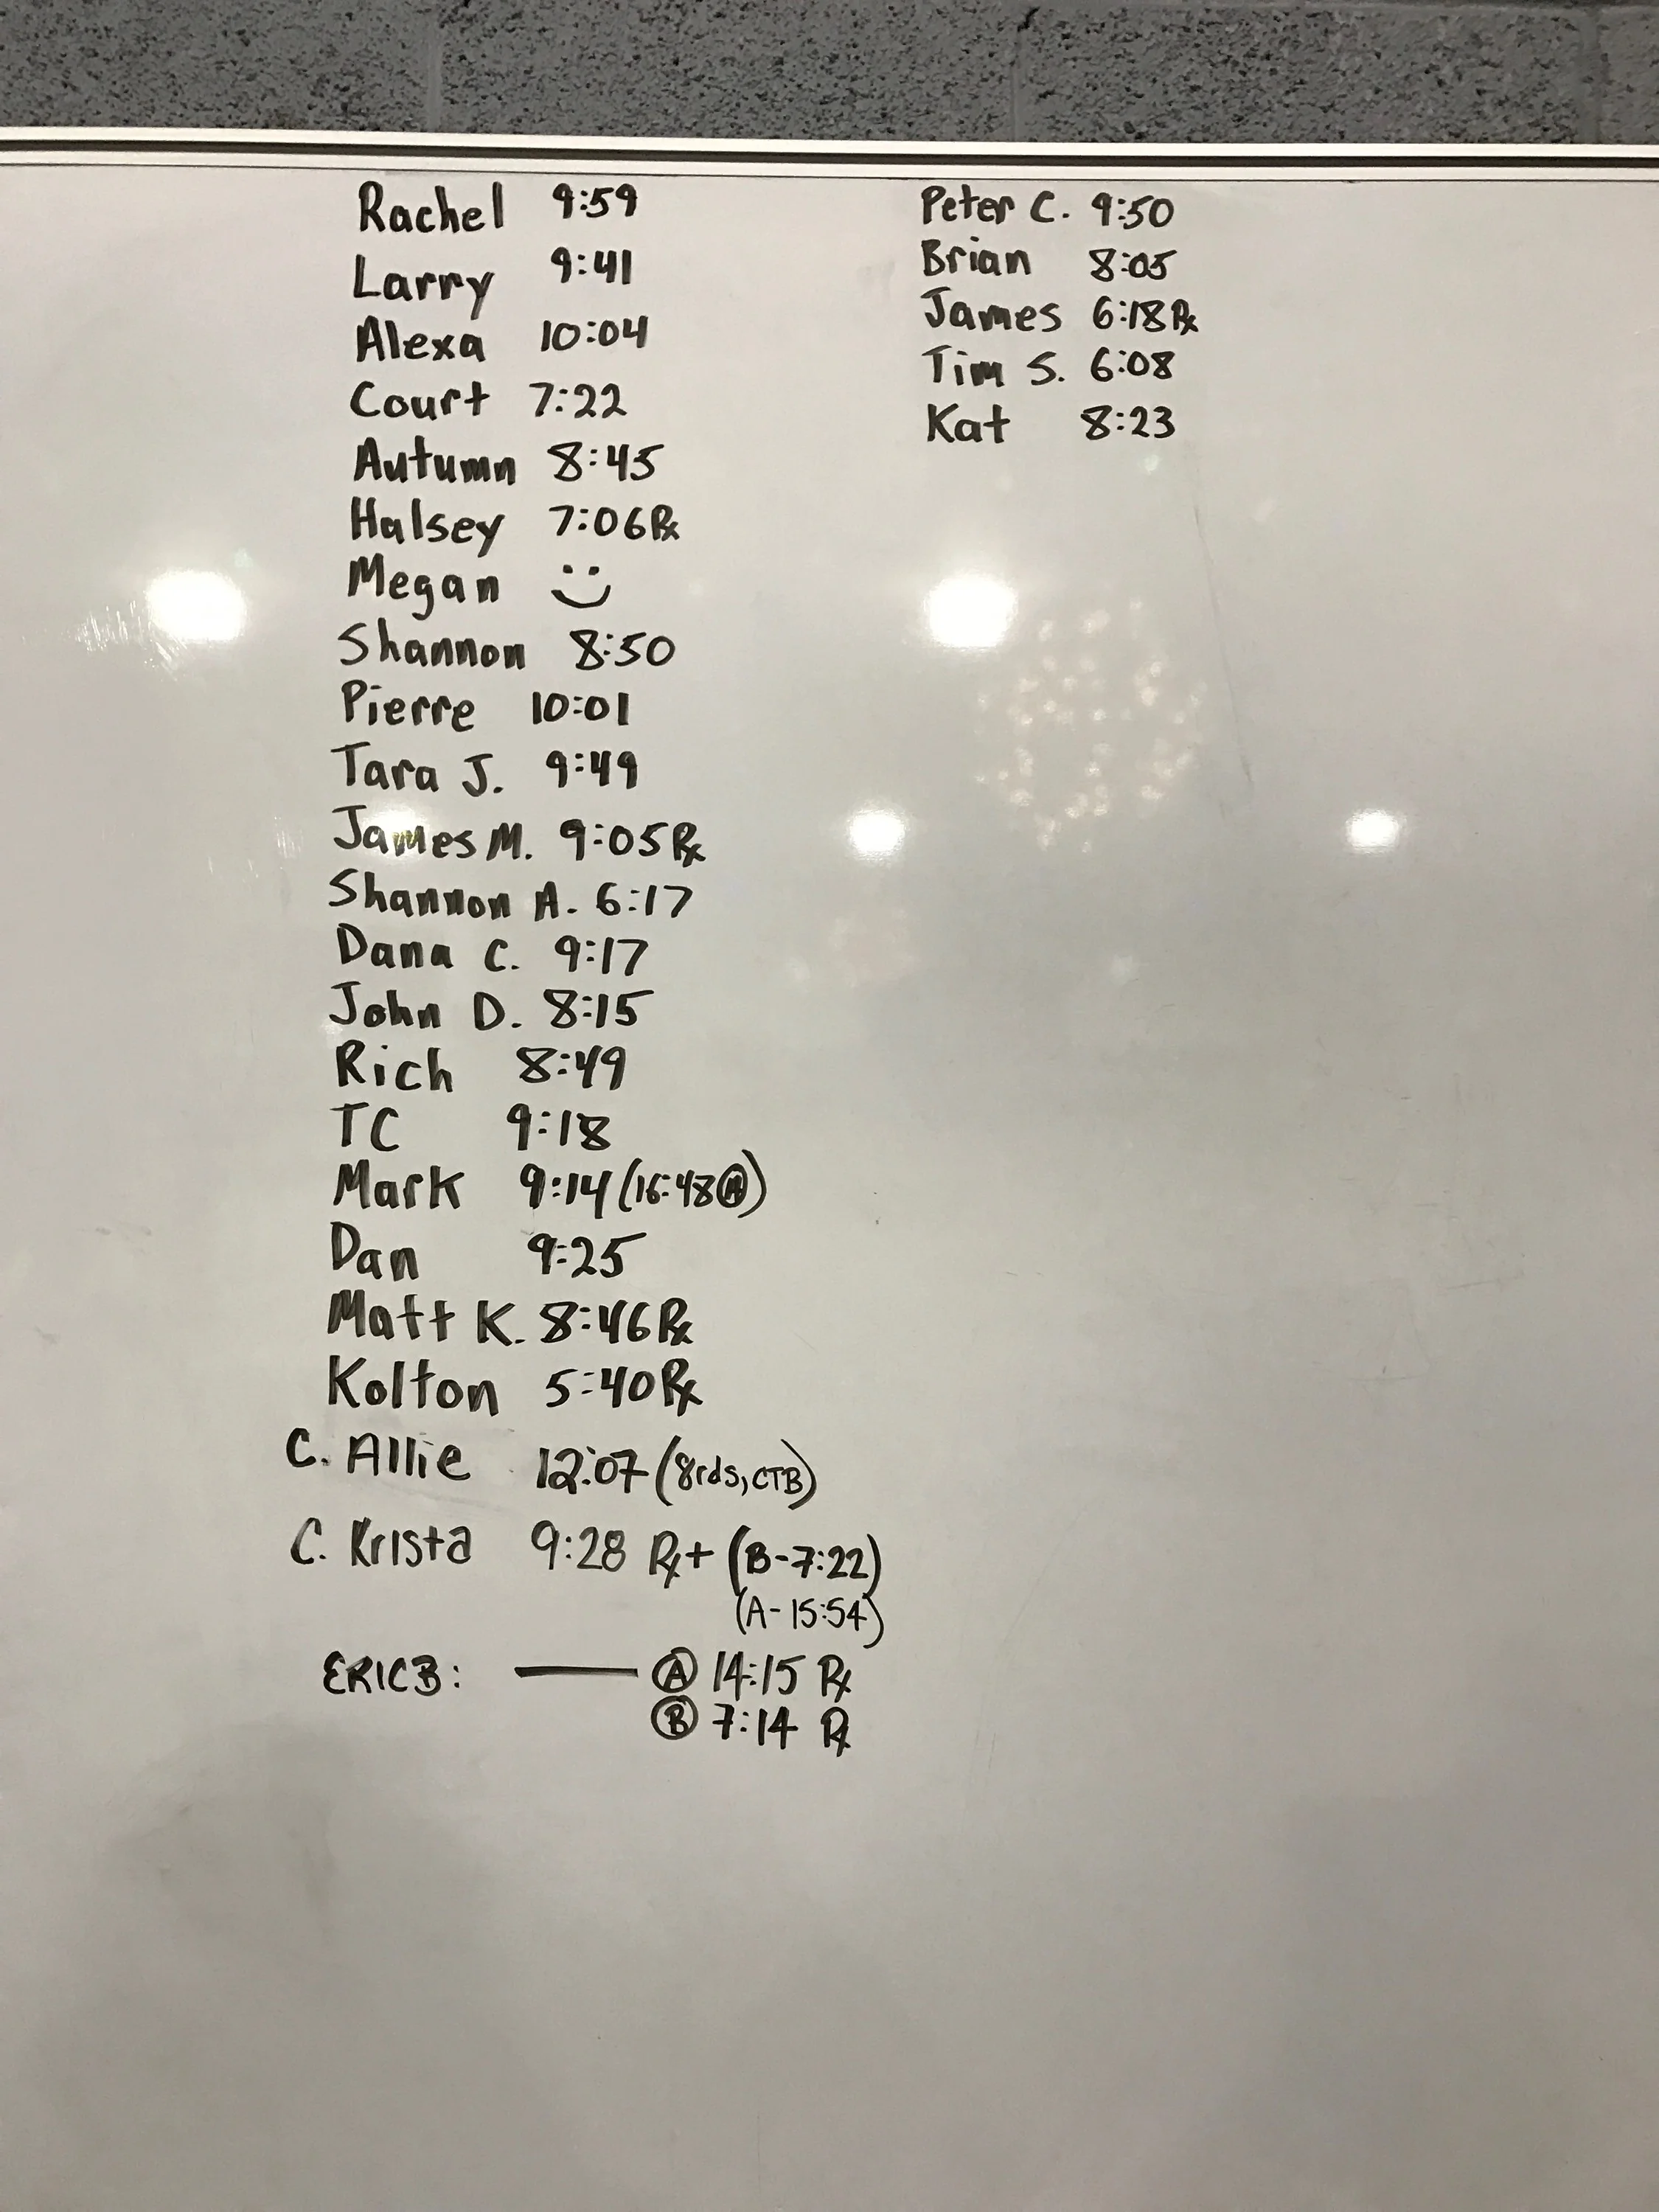 Rachel 9:59
Larry 9:41
Alexa 10:04
Court 7:22
Autumn 8:45
Halsey 7:06 Rx
Megan :)
Shannon 8:50
Pierre 10:01
Tara J. 9:49
James M. 9:05 Rx
Shannon A. 6:17
Dana C. 9:17
John D. 8:15
Rich 8:49
TC 9:18
Mark 9:14 (16:48 Ⓐ)
Dan 9:25
Matt K. 8:46 Rx
Kolton 5:40 Rx
C. Allie 12:07 (8rds, CTB)
C. Krista 9:28 Rx+ (B-7:22)
(A-15:54)
ERIC B: — Ⓐ 14:15 Rx
Ⓑ 7:14 Rx
Peter C. 9:50
Brian 8:05
James 6:18 Rx
Tim S. 6:08
Kat 8:23